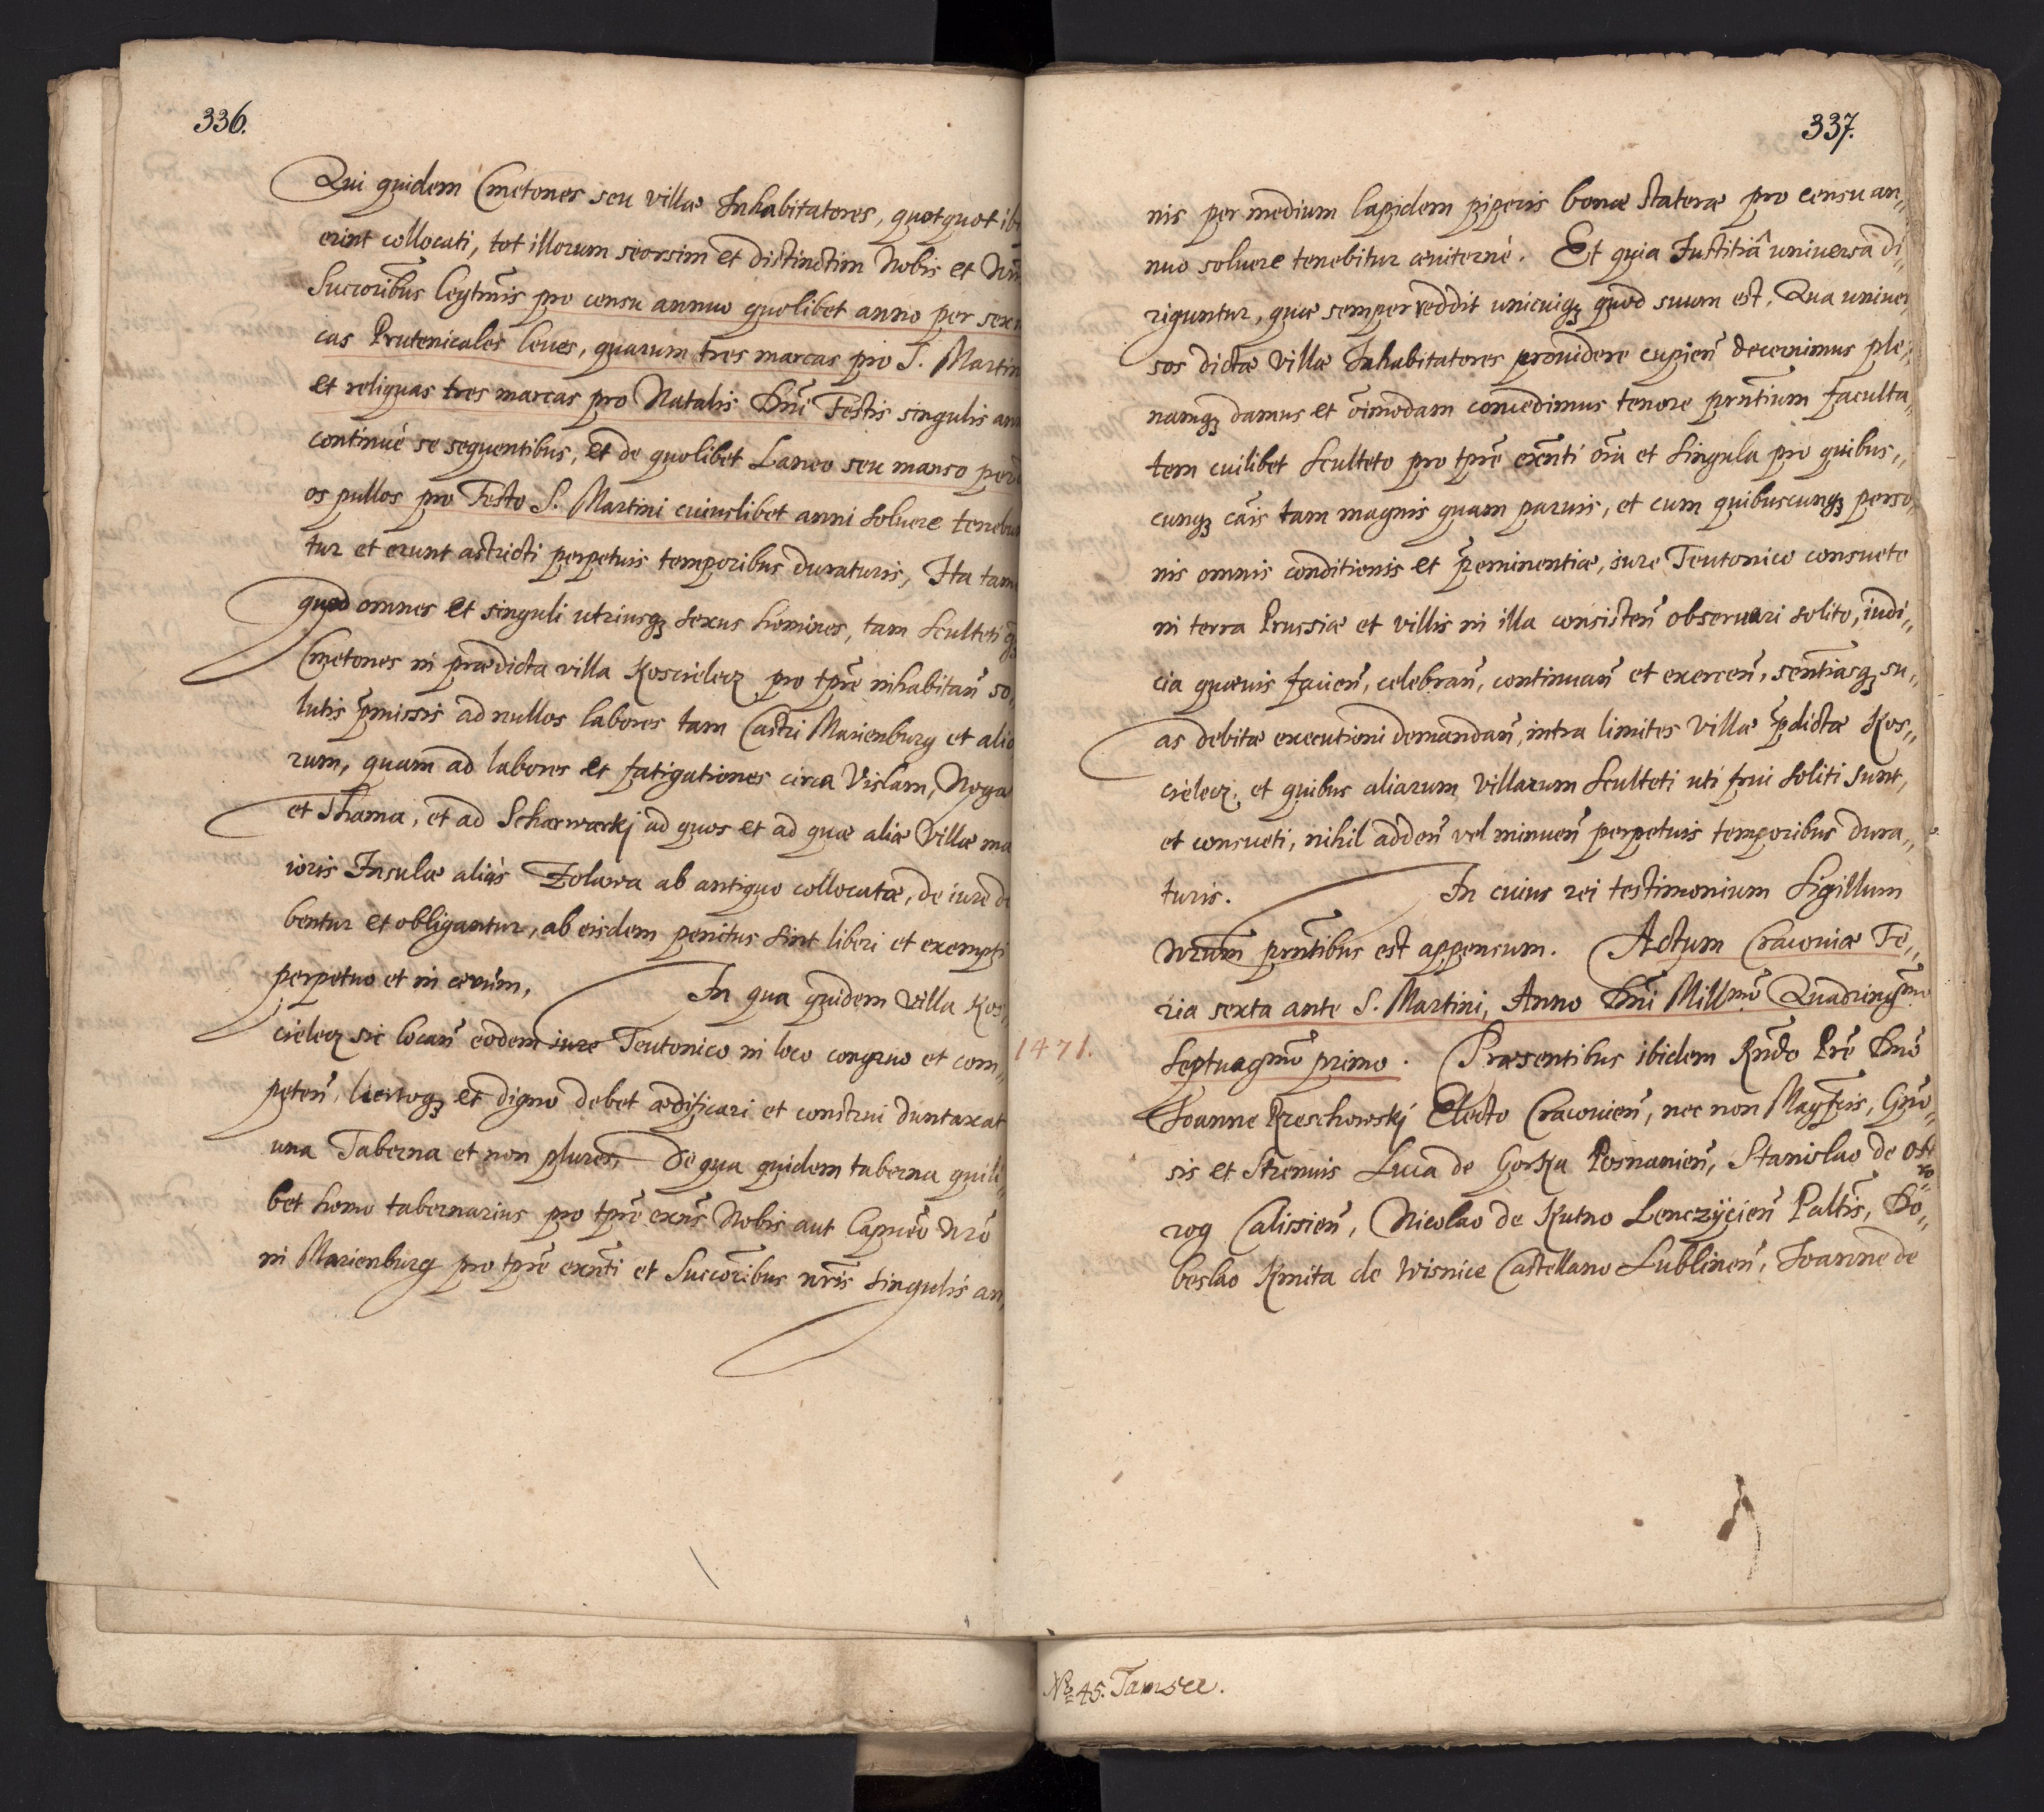 336.
Qui quidem Cmetones seu villæ Inhabitatores, quotquot ibi
erint collocati, tot illorum seorsim et distinctim Nobis et Nr̃is
Succoribus leytm̃is pro censu annuo quolibet anno per sex
cas Prutenicales leues, quarum tres marcas pro S. Martin
et reliquas tres marcas pro Natalis Dñi Festis singulis an
continuè se sequentibus, et de quolibet Laneo seu manso
os pullos pro Festo S. Martini cuiuslibet anni soluere tenebu
tur et erunt astricti perpetuis temporibus duraturis, Ita tam
quod omnes et singuli utriusqꝫ sexus homines, tam Sculteti
Cmetones in prædicta villa Koscielecz pro tp̃re inhabitan̄ so,,
lutis p̃missis ad nullos labores tam Castri Marienburg et alio
rum, quam ad labores et fatigationes circa Vislam, Noga
et Thama, et ad Scharwarkj ad quos et ad quæ aliæ Villæ ma
ioris Insulæ aliàs Zolawa ab antiquo collocatæ, de iure de
bentur et obligantur, ab eisdem penitus sint liberi et exempti
perpetuo et in ævum, In qua quidem villa Kos,,
cieleczꝫ sic locan̄ eodem iure Teutonico in loco congruo et com,,
peten̄, licitoqꝫ et digno debet ædificari et construi duntaxat
una Taberna et non plures, De qua quidem taberna quili,,
bet homo tabernarius pro tp̃re exñs Nobis aut Capneo Nr̃o
in Marienburg pro tp̃re exñti et Succoribus nr̃is singulis an,,
337.
nis per medium lapidem piperis bonæ Stateræ pro censu an,,
nuo soluere tenebitur æuiternè. Et quia Iustitiâ universa di,,
riguntur, quæ semper reddit unicuiqꝫ quod suum est, Qua univer
sos dictæ Villæ Inhabitatores prouidere cupien̄ decernimus ple,,
namqꝫ damus et oi͂modam concedimus tenore pñtium faculta,,
tem cuilibet Sculteto pro tp̃re exñti oĩa et singula pro quibus,,
cunqꝫ cãis tam magnis quam paruis, et cum quibuscunqꝫ perso,
nis omnis conditionis et p̃eminentiæ, iure Teutonico consuete
in terra Prussiæ et villis in illa consisten̄ obseruari solito, iudi,,
cia quæuis facien̄, celebran̄, continuan̄ et exercen̄, sentiasqꝫ su,,
as debitæ executioni demandan̄, intra limites Villæ p̃dictæ Kos,,
cieleczꝫ, et quibus aliarum Villarum Sculteti uti frui soliti sunt,
et consueti, nihil adden̄ vel minuen̄ perpetuis temporibus dura,,
turis. In cuius rei testimonium Sigillum
Nr̃um pñtibus est appensum. Actum Cracoviæ Fe,,
ria sexta ante S. Martini, Anno Dñi Mill͂mo Quadring͂mo
1471. Septuag͂mo primo. Præsentibus ibidem Rñdo Pr̃e Dño
Joanne Rzeschowskj Electo Cracovien̄, nec non Magfcis, Gño,,
sis et Strenuis Luca de Gorka Posnanien̄, Stanislao de Ost
ro,,
rog Calissien̄, Nicolao de Kutno Lenczÿcien̄ Paltis̃, Do,,
beslao Kmita de Wisnice Castellano Lublinen̄, Joanne de
No 45. Tansee.